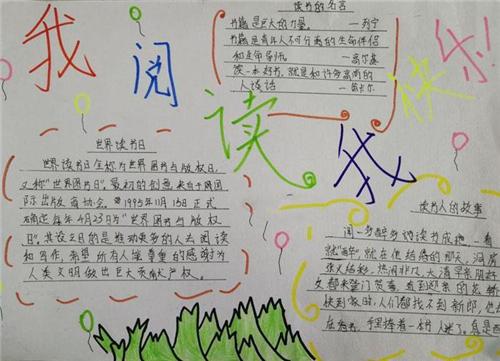 我阅读我快乐!
读书的名言
书籍是巨大的力量。 —列宁
书籍是青年人不可分离的生命伴侣
和导师。 —高尔基
读一本好书,就是和许多高尚的
人谈话 —
世界读书日
世界读书日全称为世界图书与版权日,
又称"世界图书日"。最初的创意来自于国
际出版商协会。1995年11月15日正式
确定每年4月23日为"世界图书与版权
日"。其设立目的是推动更多的人去阅读
和写作,希望所有人学尊重的感谢为
人类文明做出巨大贡献产权。
读书人的故事
闻一多醉
读书成瘾,一看
就"醉",就在他结婚的那天,洞房
张灯结彩,热闹非凡。大清早亲朋
友都来登门贺喜,直到迎亲的花轿
快到家时,人们都找不到新郎。